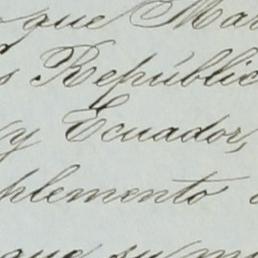 que Mar
s Repúblic
y Ecuador,
plemento
que su m